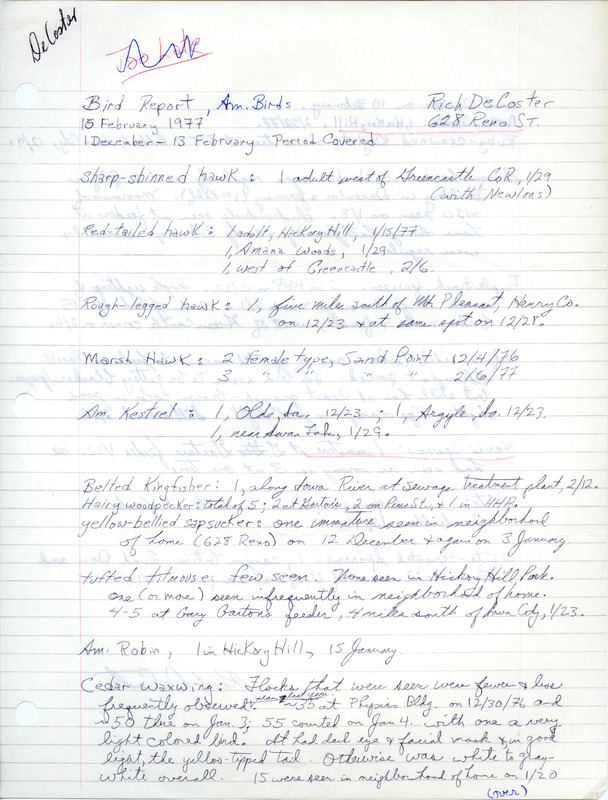 DeCoster
Too Late
Bird Report, Am. Birds Rich DeCoster
15 February 1977 628 Reno St.
1 December - 13 February Period Covered
Sharp-shinned hawk: 1 adult west of Greencastle CoR, 1/29
(with Newlons)
Red-tailed hawk: 1 adult, Hickory Hill, 1/15/77
1, Amana Woods, 1/29
1, west of Greencastle, 2/6.
Rough-legged hawk: 1, five miles south of Mt. Pleasant, Henry Co.
on 12/23 & at same spot on 12/28.
Marsh Hawk: 2 female type, Sand Point 12/4/76
3 " " " " 2/6/77
Am. Kestrel: 1, Olds, Ia. 12/23; 1, Argyle, Ia. 12/23.
1, near Swan Lake, 1/29.
Belted Kingfisher: 1, along Iowa River at sewage treatment plant, 2/12.
Hairy woodpecker: total of 5; 2 at Gartons, 2 on Reno St., & 1 in HHP.
yellow-bellied sapsucker: one immature seen in neighborhood
of home (628 Reno) on 12 December & again on 3 January.
tufted titmouse: few seen. None seen in Hickory Hill Park.
one (or more) seen infrequently in neighborhood of home.
4-5 at Gary Garton's feeder, 4 miles south of Iowa City, 1/23.
Am. Robin, 1 in Hickory Hill, 15 January.
Cedar Waxwing: Flocks that were seen were fewer & less
frequently observed than last year. ~35 at Physics Bldg. on 12/30/76 and
~50 there on Jan. 3; 55 counted on Jan 4. with one a very
light colored bird. It had dark eye & facial mask & in good
light, the yellow-tipped tail. Otherwise was white to gray-
white overall. 15 were seen in neighbourhood of home on 1/20
(over)